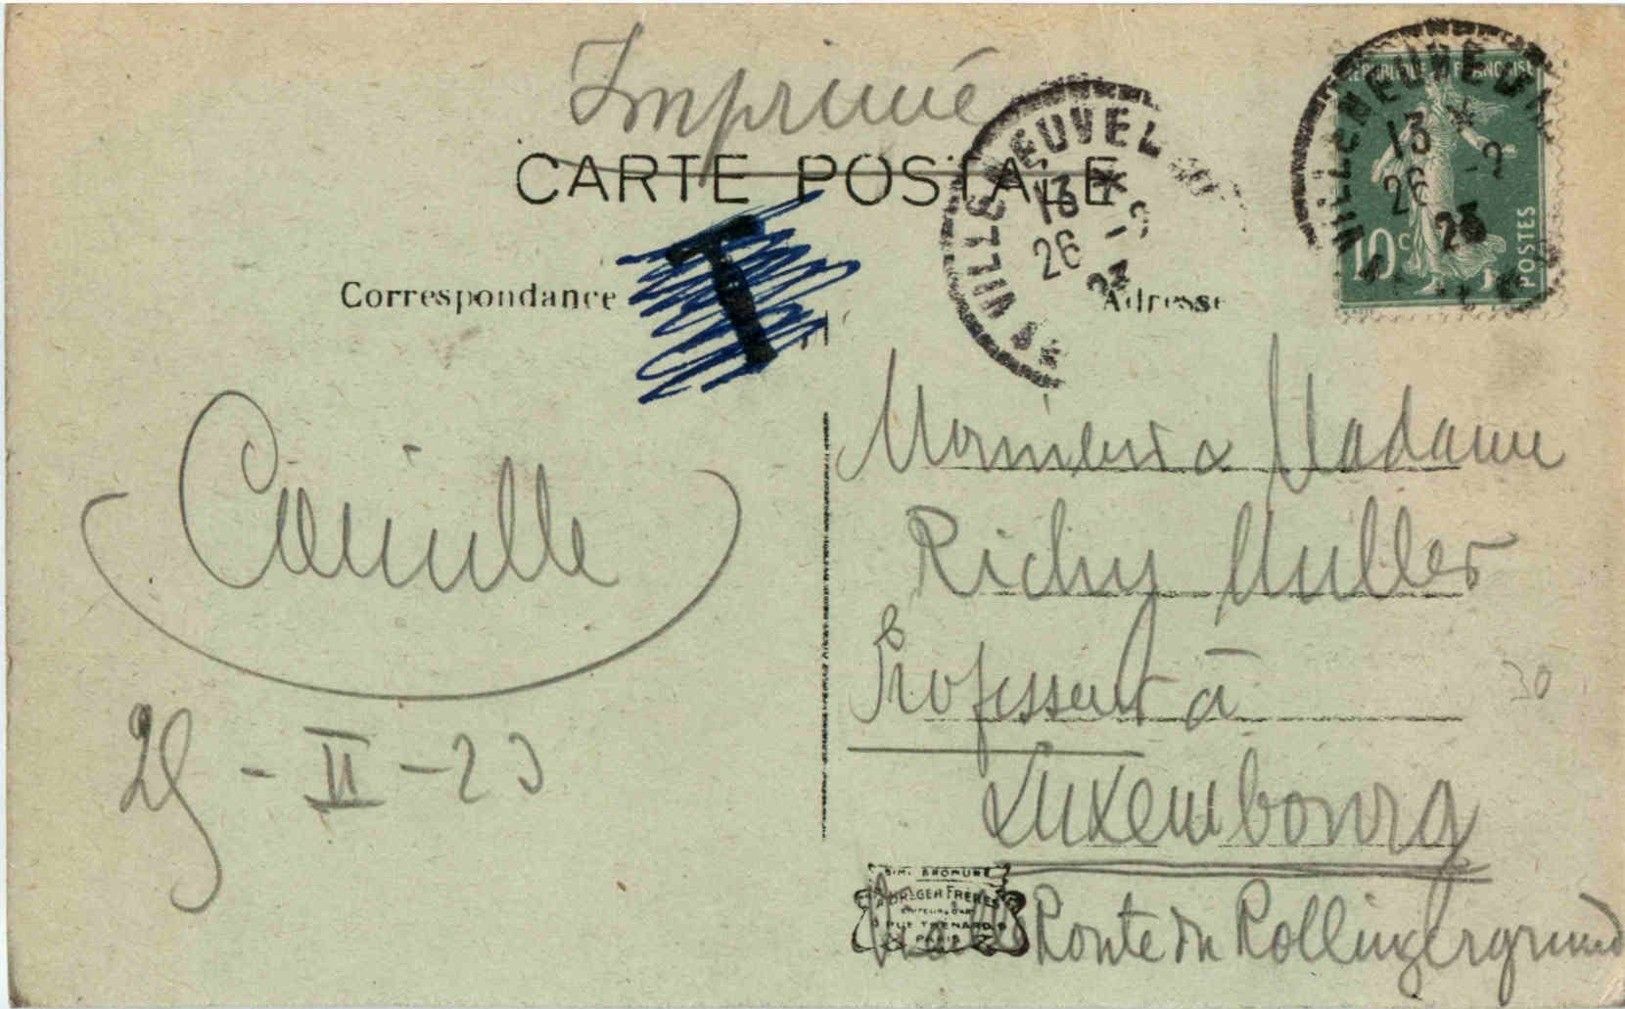 Imprimé
CARTE POSTALE
Correspondance
T
Adresse
VILLENEUVE
13 *
26 -2
23
RÉPUBLIQUE FRANÇAISE
10c
POSTES
VILLENEUVE
13 *
26 -2
23
Camille
25-II-23
Monsieur & Madame
Richy Muller
Professeur à
Luxembourg
Route du Rollingergrund
30
BROMURE
DREGER FRÈRES
RUE THÉNARD
PARIS